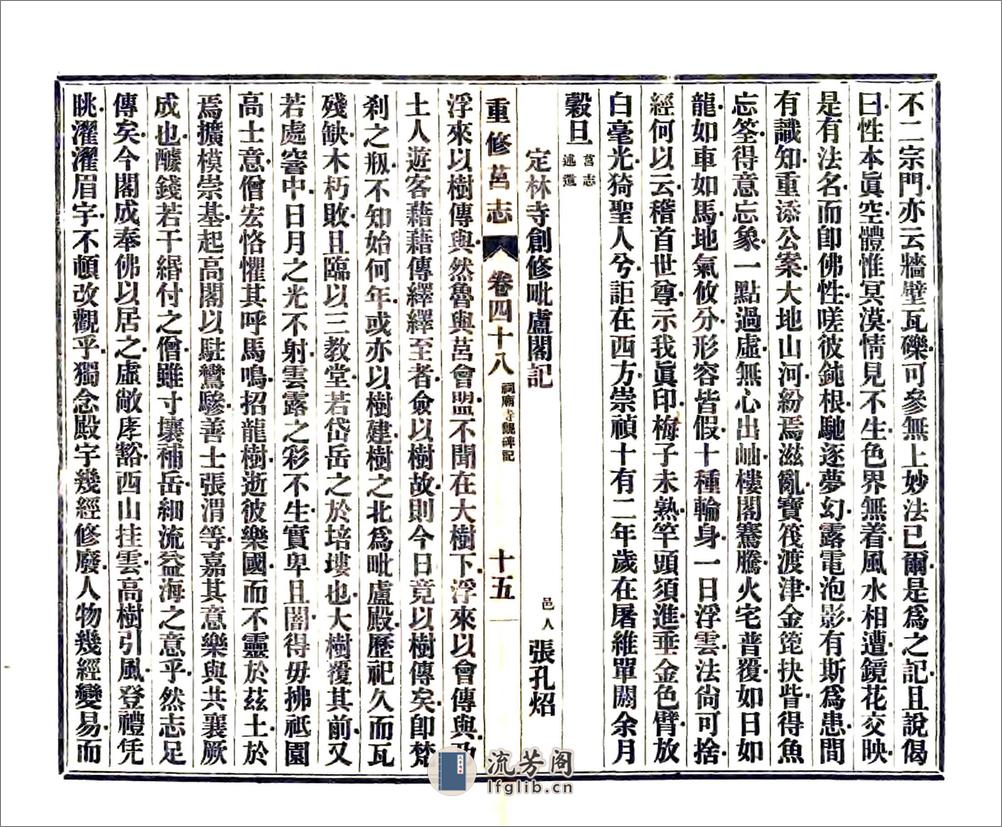 不二宗門亦云牆壁瓦礫可參無上妙法已爾是爲之記且說偈
曰性本眞空體惟冥漠情見不生色界無着風水相遭鏡花交映
是有法名而卽佛性嗟彼鈍根馳逐夢幻露電泡影有斯爲患間
有識知重添公案大地山河紛焉滋亂寶筏渡津金箆抉眥得魚
忘筌得意忘象一點過虛無心出岫樓閣騫騰火宅普覆如日如
龍如車如馬地氣攸分形容皆假十種輪身一日浮雲法尙可捨
經何以云稽首世尊示我眞印梅子未熟竿頭須進垂金色臂放
白毫光猗聖人兮詎在西方崇禎十有二年歲在屠維單閼余月
穀旦 莒志遞遺
定林寺創修毗盧閣記 邑人張孔炤
重修莒志 卷四十八 祠廟寺觀碑記 十五
浮來以樹傳與然魯與莒會盟不聞在大樹下浮來以會傳與乃
土人遊客藉藉傳繹繹至者僉以樹故則今日竟以樹傳矣卽梵
刹之瓶不知始何年或亦以樹建樹之北爲毗盧殿歷祀久而瓦
殘缺木朽敗且臨以三教堂若岱岳之於培塿也大樹覆其前又
若處窨中日月之光不射雲露之彩不生實卑且闇得毋拂祇園
高士意僧宏恪懼其呼馬鳴招龍樹逝彼樂國而不靈於茲土於
焉擴模崇基起高閣以駐鸞驂善士張渭等嘉其意樂與共襄厥
成也醵錢若干緡付之僧雖寸壤補岳細流益海之意乎然志足
傳矣今閣成奉佛以居之虛敞庨豁西山挂雲高樹引風登禮凭
眺濯濯眉宇不頓改觀乎獨念殿宇幾經修廢人物幾經變易而
流芳阁
lfglib.cn